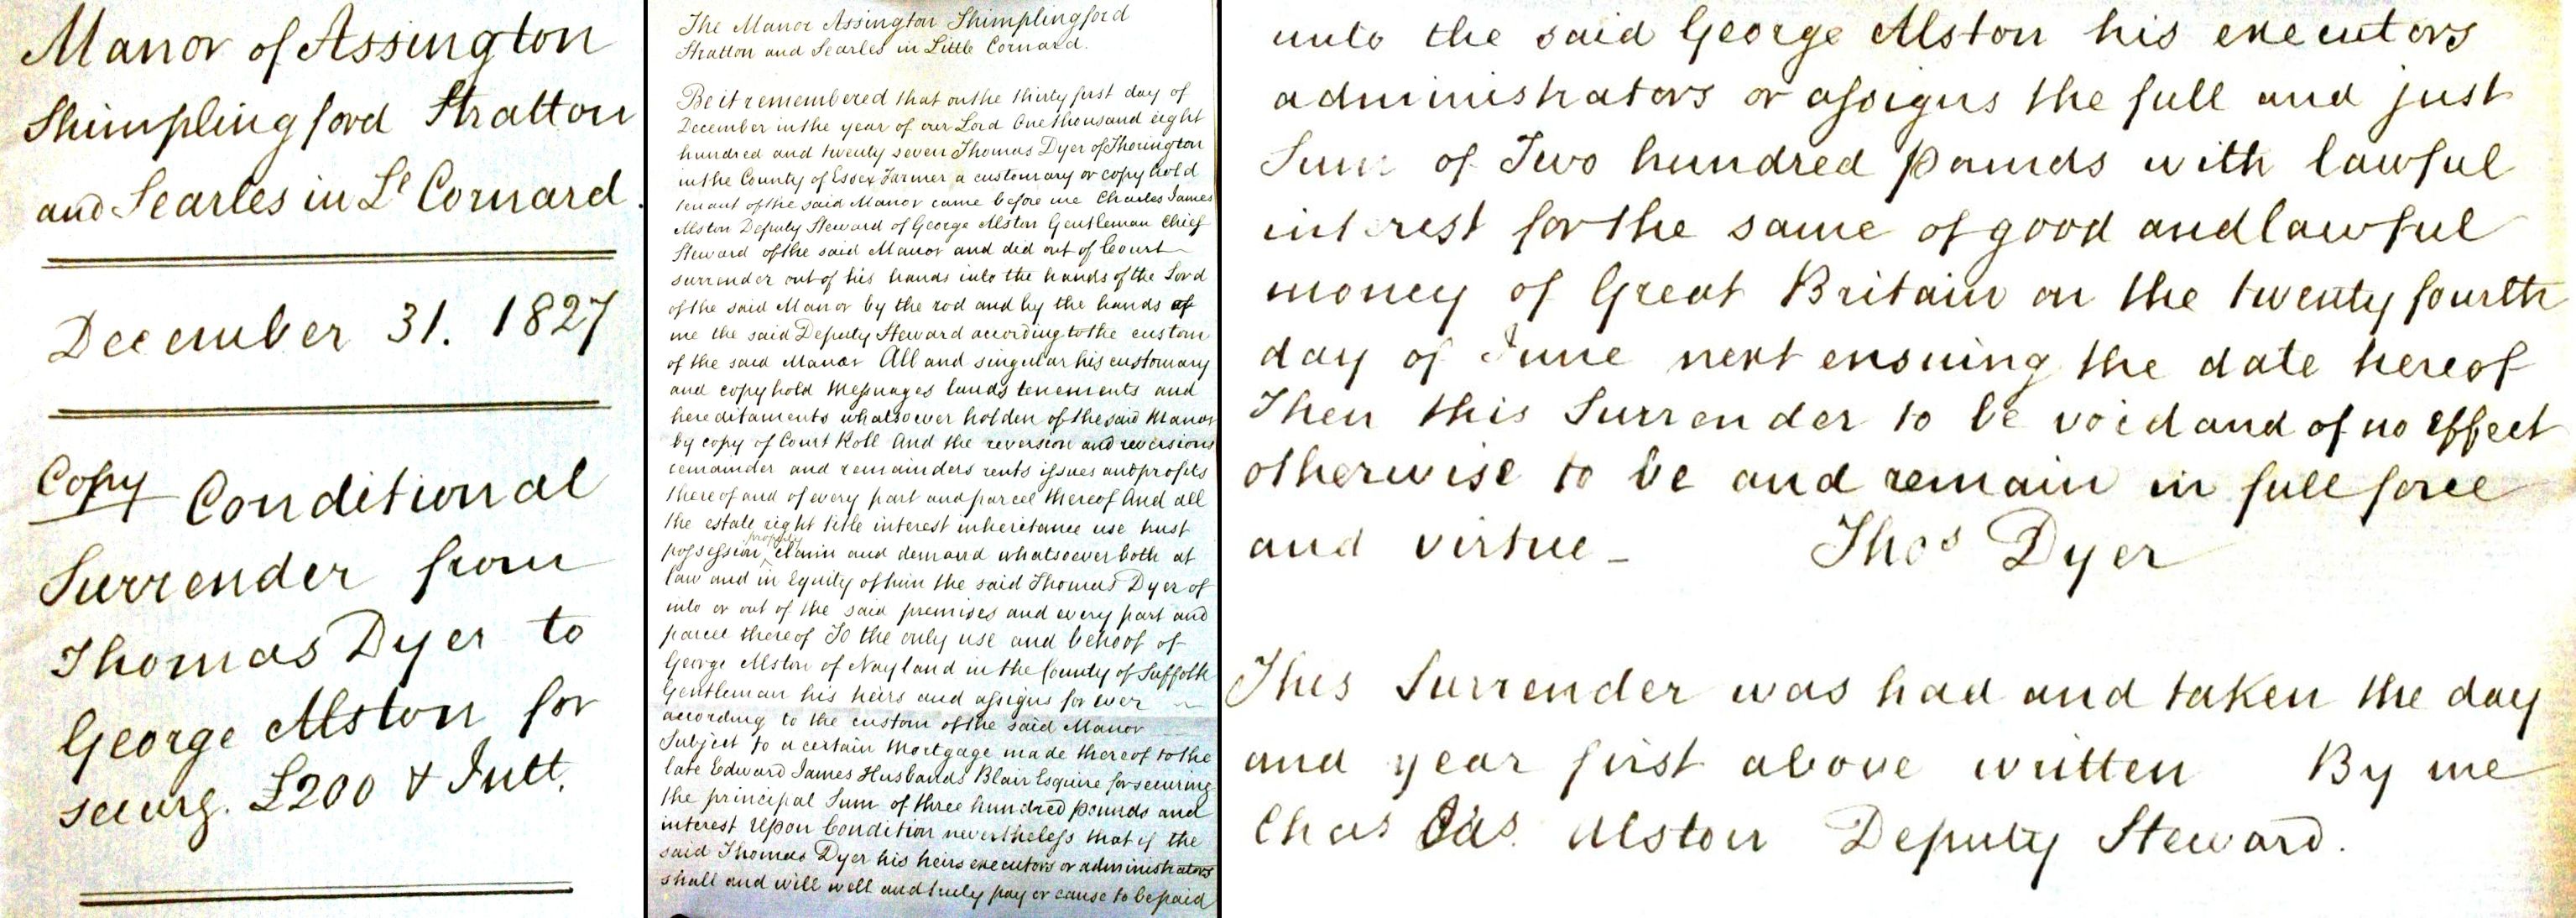 Manor of Assington
Shimplingford Stratton
and Searles in Le Cornard.
December 31. 1827
Copy Conditional
Surrender from
Thomas Dyer to
George Alston for
securg. £200 & Intt.
The Manor Assington Shimplingford
Stratton and Searles in Little Cornard.
Be it remembered that on the thirty first day of
December in the year of our Lord One thousand eight
hundred and twenty seven Thomas Dyer of Thorington
in the County of Essex Farmer a customary or copyhold
tenant of the said Manor came before me Charles James
Alston Deputy Steward of George Alston Gentleman Chief
Steward of the said Manor and did out of Court
surrender out of his hands into the hands of the Lord
of the said Manor by the rod and by the hands of
me the said Deputy Steward acording to the custom
of the said Manor All and singular his customary
and copyhold Messuages lands tenements and
hereditaments whatsoever holden of the said Manor
by copy of Court Roll And the reversion and reversions
remainder and remainders rents issues and profits
thereof and of every part and parcel thereof And all
the estate right title interest inheritance use trust
possession property claim and demand whatsoever both at
law and in Equity of him the said Thomas Dyer of
into or out of the said premises and every part and
parcel thereof To the only use and behoof of
George Alston of Nayland in the County of Suffolk
Gentleman his heirs and assigns for ever
acording to the custom of the said Manor
Subject to a certain Mortgage made thereof to the
late Edward James Husbands Blair Esquire for securing
the principal Sum of three hundred pounds and
interest Upon Condition nevertheless that if the
said Thomas Dyer his heirs executors or administrators
shall and will well and truly pay or cause to be paid
unto the said George Alston his executors
administrators or assigns the full and just
Sum of Two hundred pounds with lawful
interest for the same of good and lawful
money of Great Britain on the twenty fourth
day of June next ensuing the date hereof
Then this Surrender to be void and of no effect
otherwise to be and remain in full force
and virtue - Thos Dyer
This Surrender was had and taken the day
and year first above written By me
Chas Jas. Alston Deputy Steward.